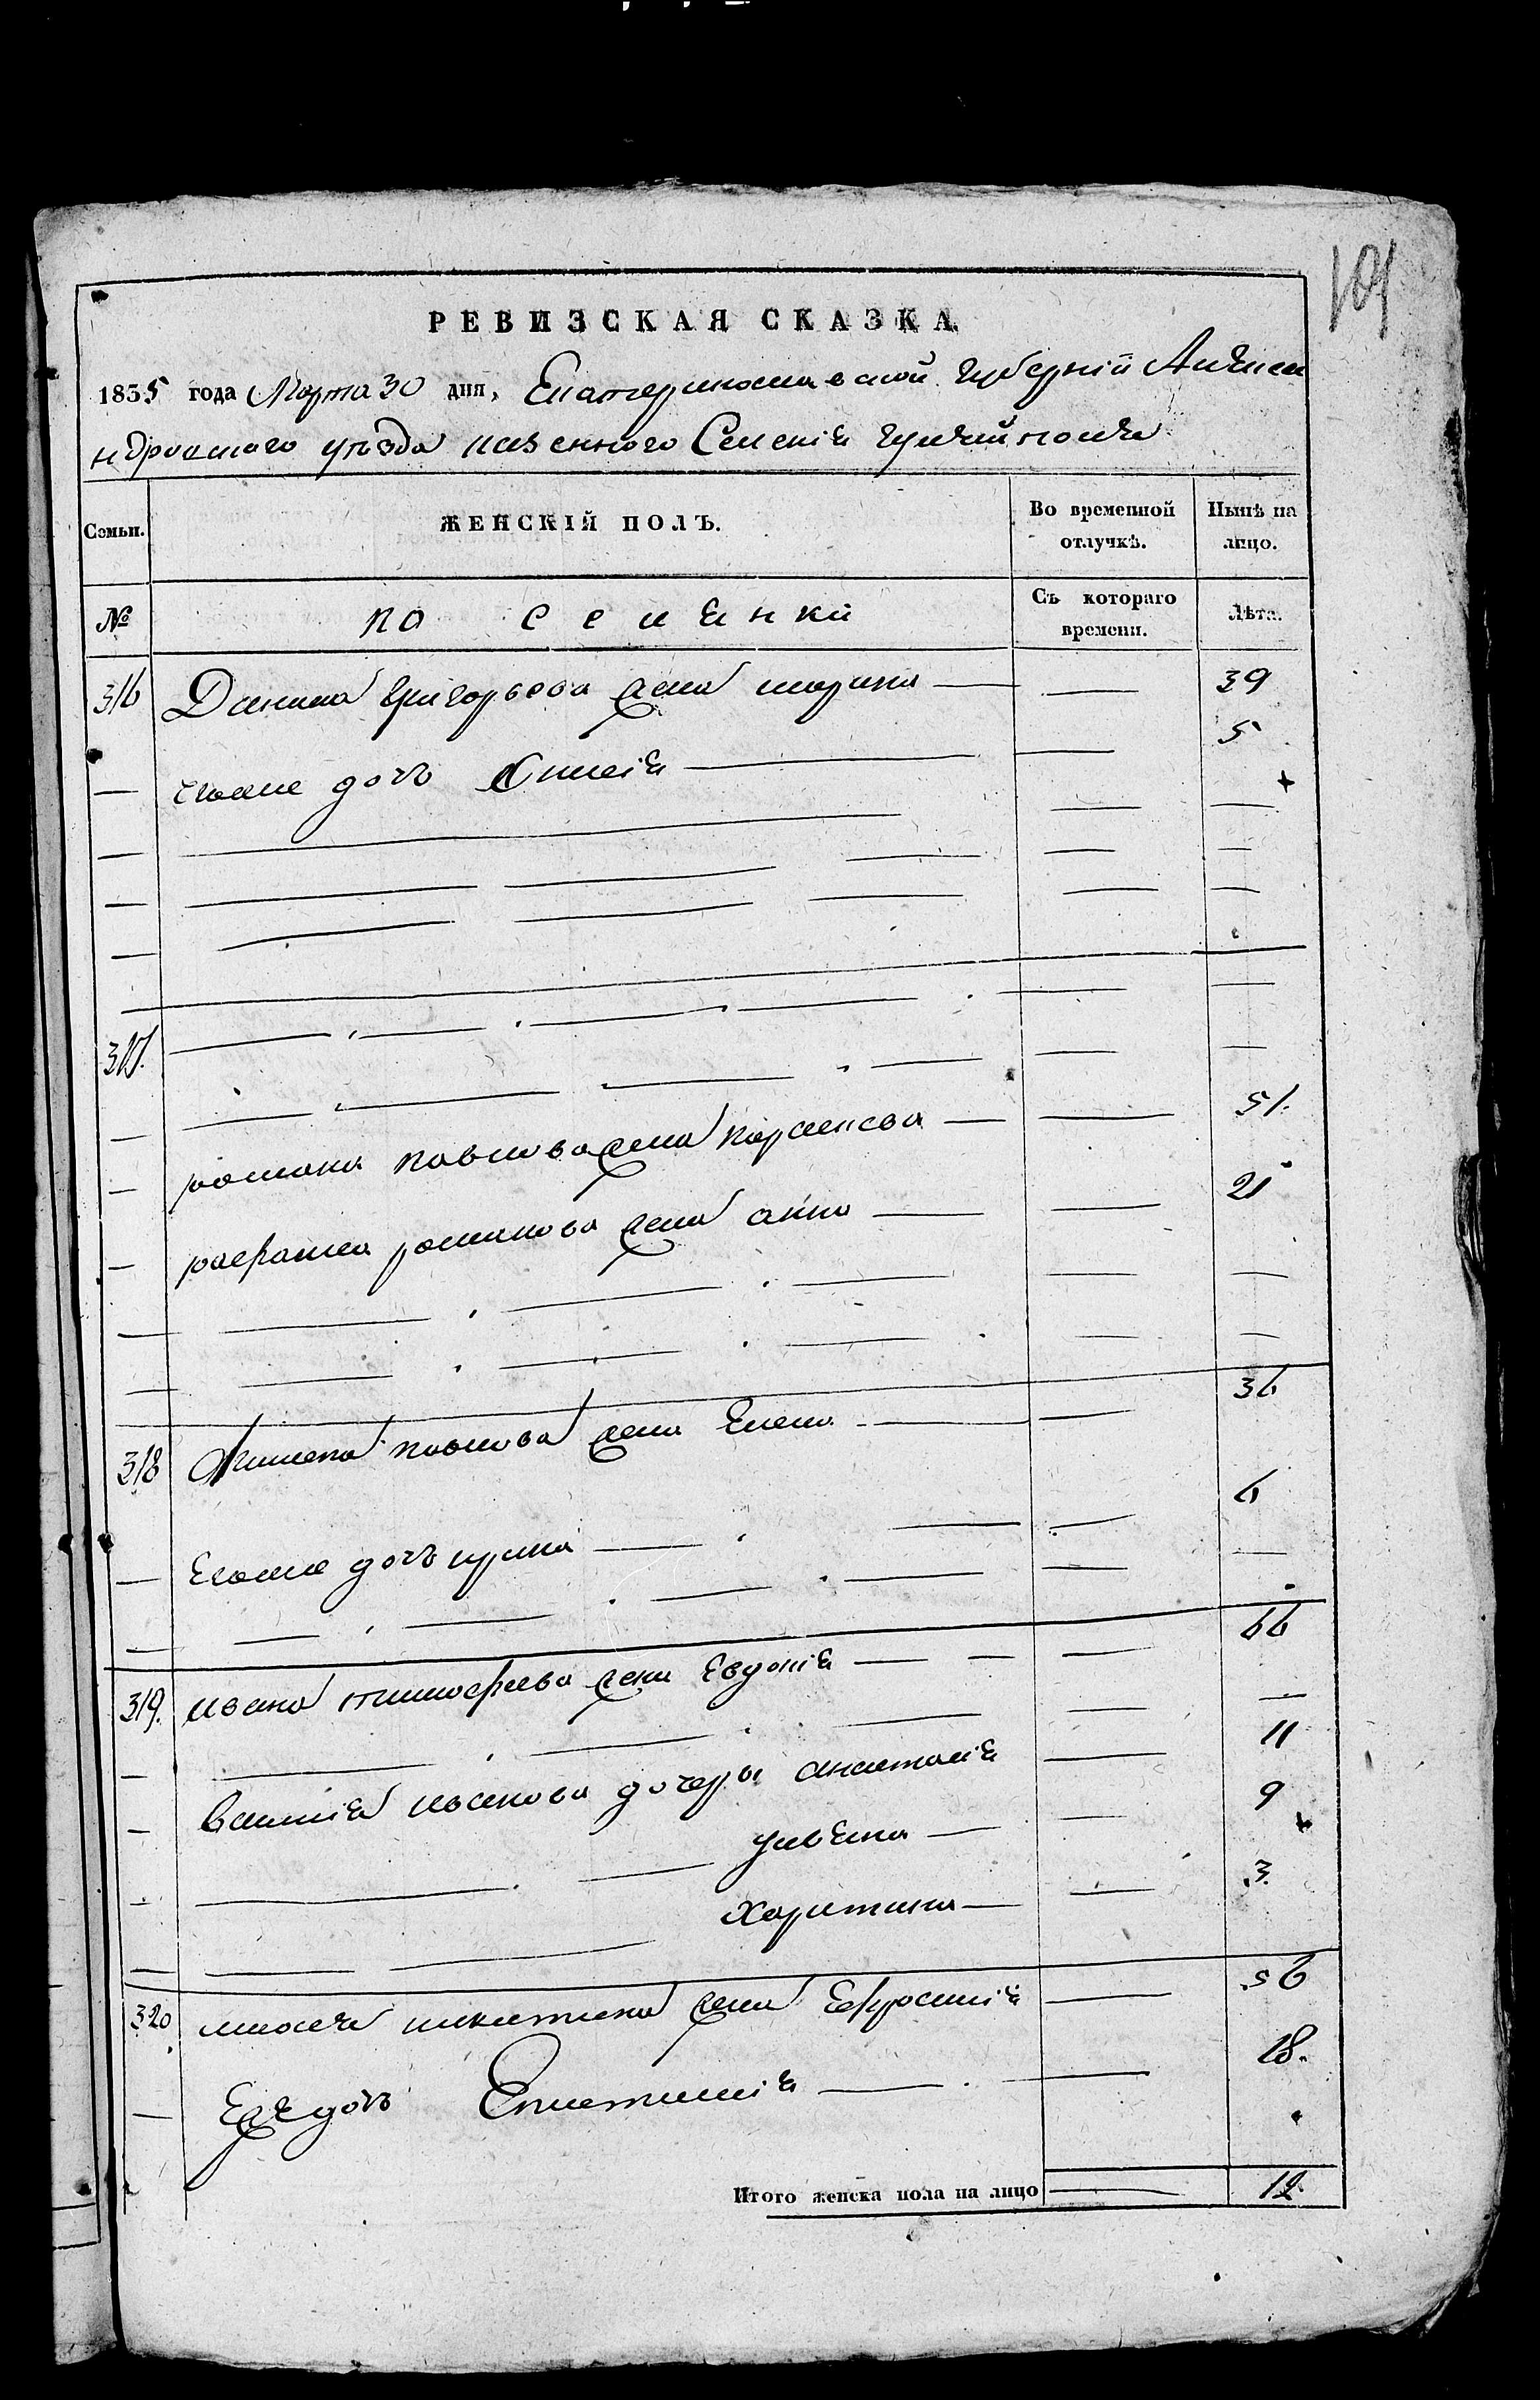 101
РЕВИЗСКАЯ СКАЗКА
1835 года Марта 30 дня, Екатеринославской губернiи Алексан
ндровского уѣзда казенного Селенiя гуляйполя
Семьи. ЖЕНСКIЙ ПОЛЪ. Во временной отлучкѣ. Нынѣ на лицо.
№ поселянки Съ котораго времени. Лѣта.
316 Данила григорьева жена марина — — 39
— его же дочь — — 5
317.
— романа павлова жена — — 51.
— романова жена анна — — 21
318 павлова жена Елена — — 36
— Его же дочь ирина — — 6
319. ивана тимофеева жена Евдокiя — — 66
— Василiя иванова дочеры анастасiя — 11
— — 9
— Харитина — — 3.
320 никитина жена Ефросинiя — 56
— Ея же дочь — — 18.
Итого женска пола на лицо — 12